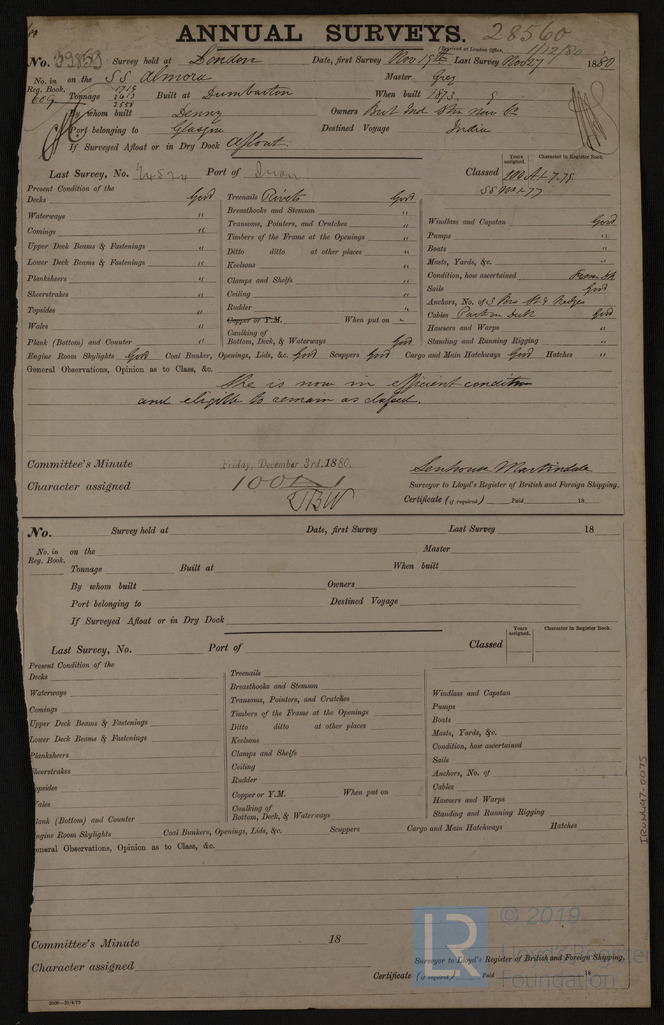 ANNUAL SURVEYS. 28560
(Received at London Office, 1/12/80
No. 39853 Survey held at London Date, first Survey Nov 19th Last Survey Nov 27 1880
No. in Reg. Book. 609 on the SS Almora Master Grey
Tonnage 1716 2613 2558 Built at Dumbarton When built 1873
By whom built Denny Owners Brit Ind Stm Nav Co
Port belonging to Glasgow Destined Voyage India
If Surveyed Afloat or in Dry Dock Afloat.
Years assigned. Character in Register Book.
Last Survey, No. Port of Iron Classed 100 A1 7.79
SS No 1 77
Present Condition of the
Decks Good Treenails Rivets Good
Waterways " Breasthooks and Stemson "
Comings " Transoms, Pointers, and Crutches " Windlass and Capstan Good
Upper Deck Beams & Fastenings " Timbers of the Frame at the Openings " Pumps "
Lower Deck Beams & Fastenings " Ditto ditto at other places " Boats "
Planksheers " Keelsons " Masts, Yards, &c. "
Sheerstrakes " Clamps and Shelfs " Condition, how ascertained From Dk
Topsides " Ceiling " Sails Good
Wales " Rudder " Anchors, No. of 3 Brs St & Kedges
Plank (Bottom) and Counter " Copper or Y.M. When put on " Cables Part on Deck Good
Caulking of Bottom, Deck, & Waterways Good Hawsers and Warps "
Standing and Running Rigging "
Engine Room Skylights Good Coal Bunker, Openings, Lids, &c. Good Scuppers Good Cargo and Main Hatchways Good Hatches "
General Observations, Opinion as to Class, &c.
She is now in efficient condition
and eligible to remain as classed.
Committee's Minute Friday, December 3rd. 1880. Senhouse Martindale
Character assigned 100A1 Surveyor to Lloyd's Register of British and Foreign Shipping.
Certificate (if required) Paid 18
No. Survey held at Date, first Survey Last Survey 18
No. in Reg. Book. on the Master
Tonnage Built at When built
By whom built Owners
Port belonging to Destined Voyage
If Surveyed Afloat or in Dry Dock
Years assigned. Character in Register Book.
Last Survey, No. Port of Classed
Present Condition of the
Decks Treenails
Waterways Breasthooks and Stemson Windlass and Capstan
Comings Transoms, Pointers, and Crutches Pumps
Upper Deck Beams & Fastenings Timbers of the Frame at the Openings Boats
Lower Deck Beams & Fastenings Ditto ditto at other places Masts, Yards, &c.
Planksheers Keelsons Condition, how ascertained
heerstrakes Clamps and Shelfs Sails
opsides Ceiling Anchors, No. of
ales Rudder Cables
lank (Bottom) and Counter Copper or Y.M. When put on Hawsers and Warps
Caulking of Bottom, Deck, & Waterways Standing and Running Rigging
ngine Room Skylights Coal Bunkers, Openings, Lids, &c. Scuppers Cargo and Main Hatchways Hatches
eneral Observations, Opinion as to Class, &c.
Committee's Minute 18
Character assigned Surveyor to Lloyd's Register of British and Foreign Shipping.
Certificate (if required) Paid 18
IRON1497-0075
LR © 2019
Lloyd's Register
Foundation